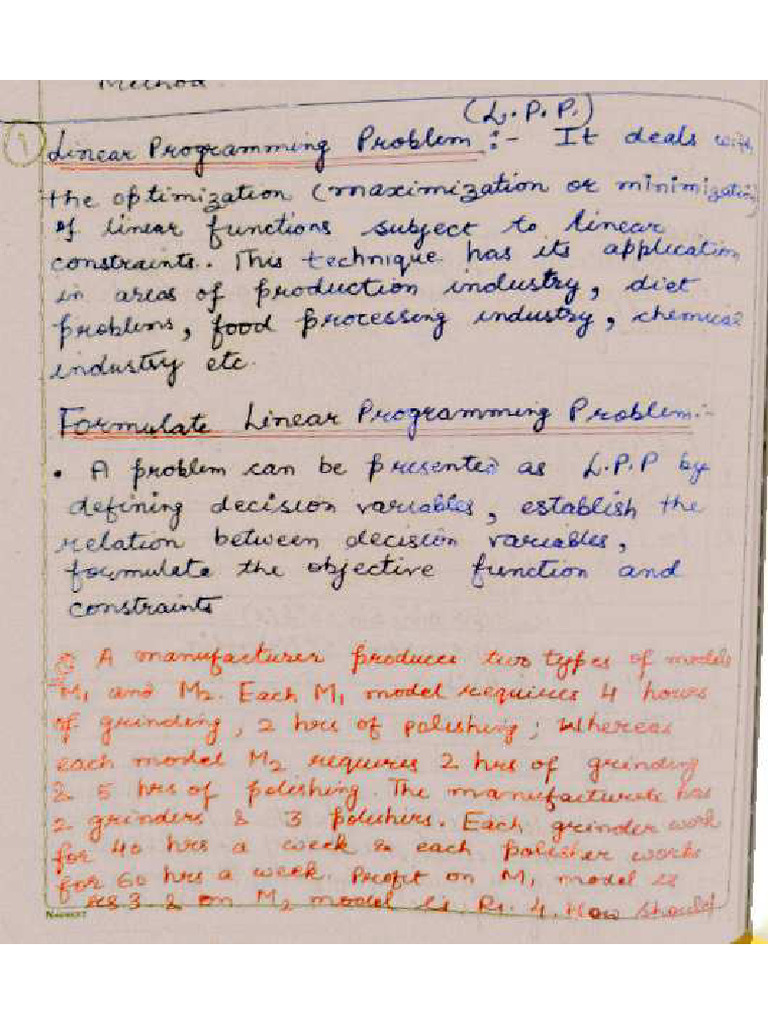 Method.
(L.P.P.)
1 Linear Programming Problem :- It deals with
the optimization (maximization or minimization)
of linear functions subject to linear
constraints. This technique has its application
in areas of production industry, diet
problems, food processing industry, chemical
industry etc.
Formulate Linear Programming Problem:-
• A problem can be presented as L.P.P by
defining decision variables, establish the
relation between decision variables,
formulate the objective function and
constraints
Q A manufacturer produces two types of models
M1 and M2. Each M1 model requires 4 hours
of grinding, 2 hrs of polishing; Whereas
each model M2 requires 2 hrs of grinding
& 5 hrs of polishing. The manufacturer has
2 grinders & 3 polishers. Each grinder work
for 40 hrs a week & each polisher works
for 60 hrs a week. Profit on M1 model is
Rs 3 & on M2 model is Rs. 4. How should
NAVNEET